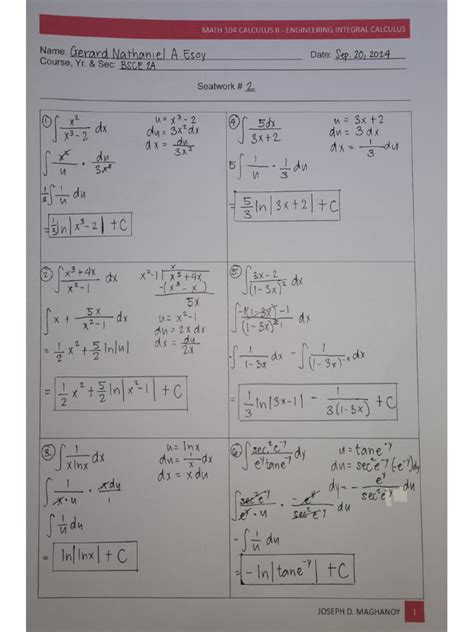 MATH 104 CALCULUS II - ENGINEERING INTEGRAL CALCULUS
Name: Gerard Nathaniel A. Esoy Date: Sep. 20, 2024
Course, Yr. & Sec: BSCE 2A
Seatwork # 2
① ∫ x²/(x³-2) dx u = x³-2
du = 3x² dx
dx = du/3x²
∫ x²/u · du/3x²
1/3 ∫ 1/u du
= 1/3 ln|x³-2| + C
④ ∫ 5dx/(3x+2) u = 3x+2
du = 3 dx
dx = 1/3 du
5 ∫ 1/u · 1/3 du
= 5/3 ln|3x+2| + C
② ∫ (x³+4x)/(x²-1) dx
x
x²-1 √ x³+4x
-(x³ - x)
5x
∫ x + 5x/(x²-1) dx u = x²-1
du = 2x dx
dx = du/2x
= 1/2 x² + 5/2 ln|u|
= 1/2 x² + 5/2 ln|x²-1| + C
⑤ ∫ (3x-2)/(1-3x)² dx
∫ (-1(1-3x)-1)/(1-3x)² dx
-∫ 1/(1-3x) dx - ∫ 1/(1-3x)² dx
= 1/3 ln|3x-1| - 1/(3(1-3x)) + C
③ ∫ 1/(x lnx) dx u = lnx
du = 1/x dx
dx = x du
∫ 1/(x·u) · x du/1
∫ 1/u du
= ln|lnx| + C
⑥ ∫ sec²e⁻ʸ/(eʸ tane⁻ʸ) dy u = tane⁻ʸ
du = sec²e⁻ʸ(-e⁻ʸ)dy
dy = - eʸ/(sec²e⁻ʸ) du
∫ sec²e⁻ʸ/(eʸ·u) · -eʸ/(sec²e⁻ʸ) du
-∫ 1/u du
= -ln|tane⁻ʸ| + C
JOSEPH D. MAGHANOY 1